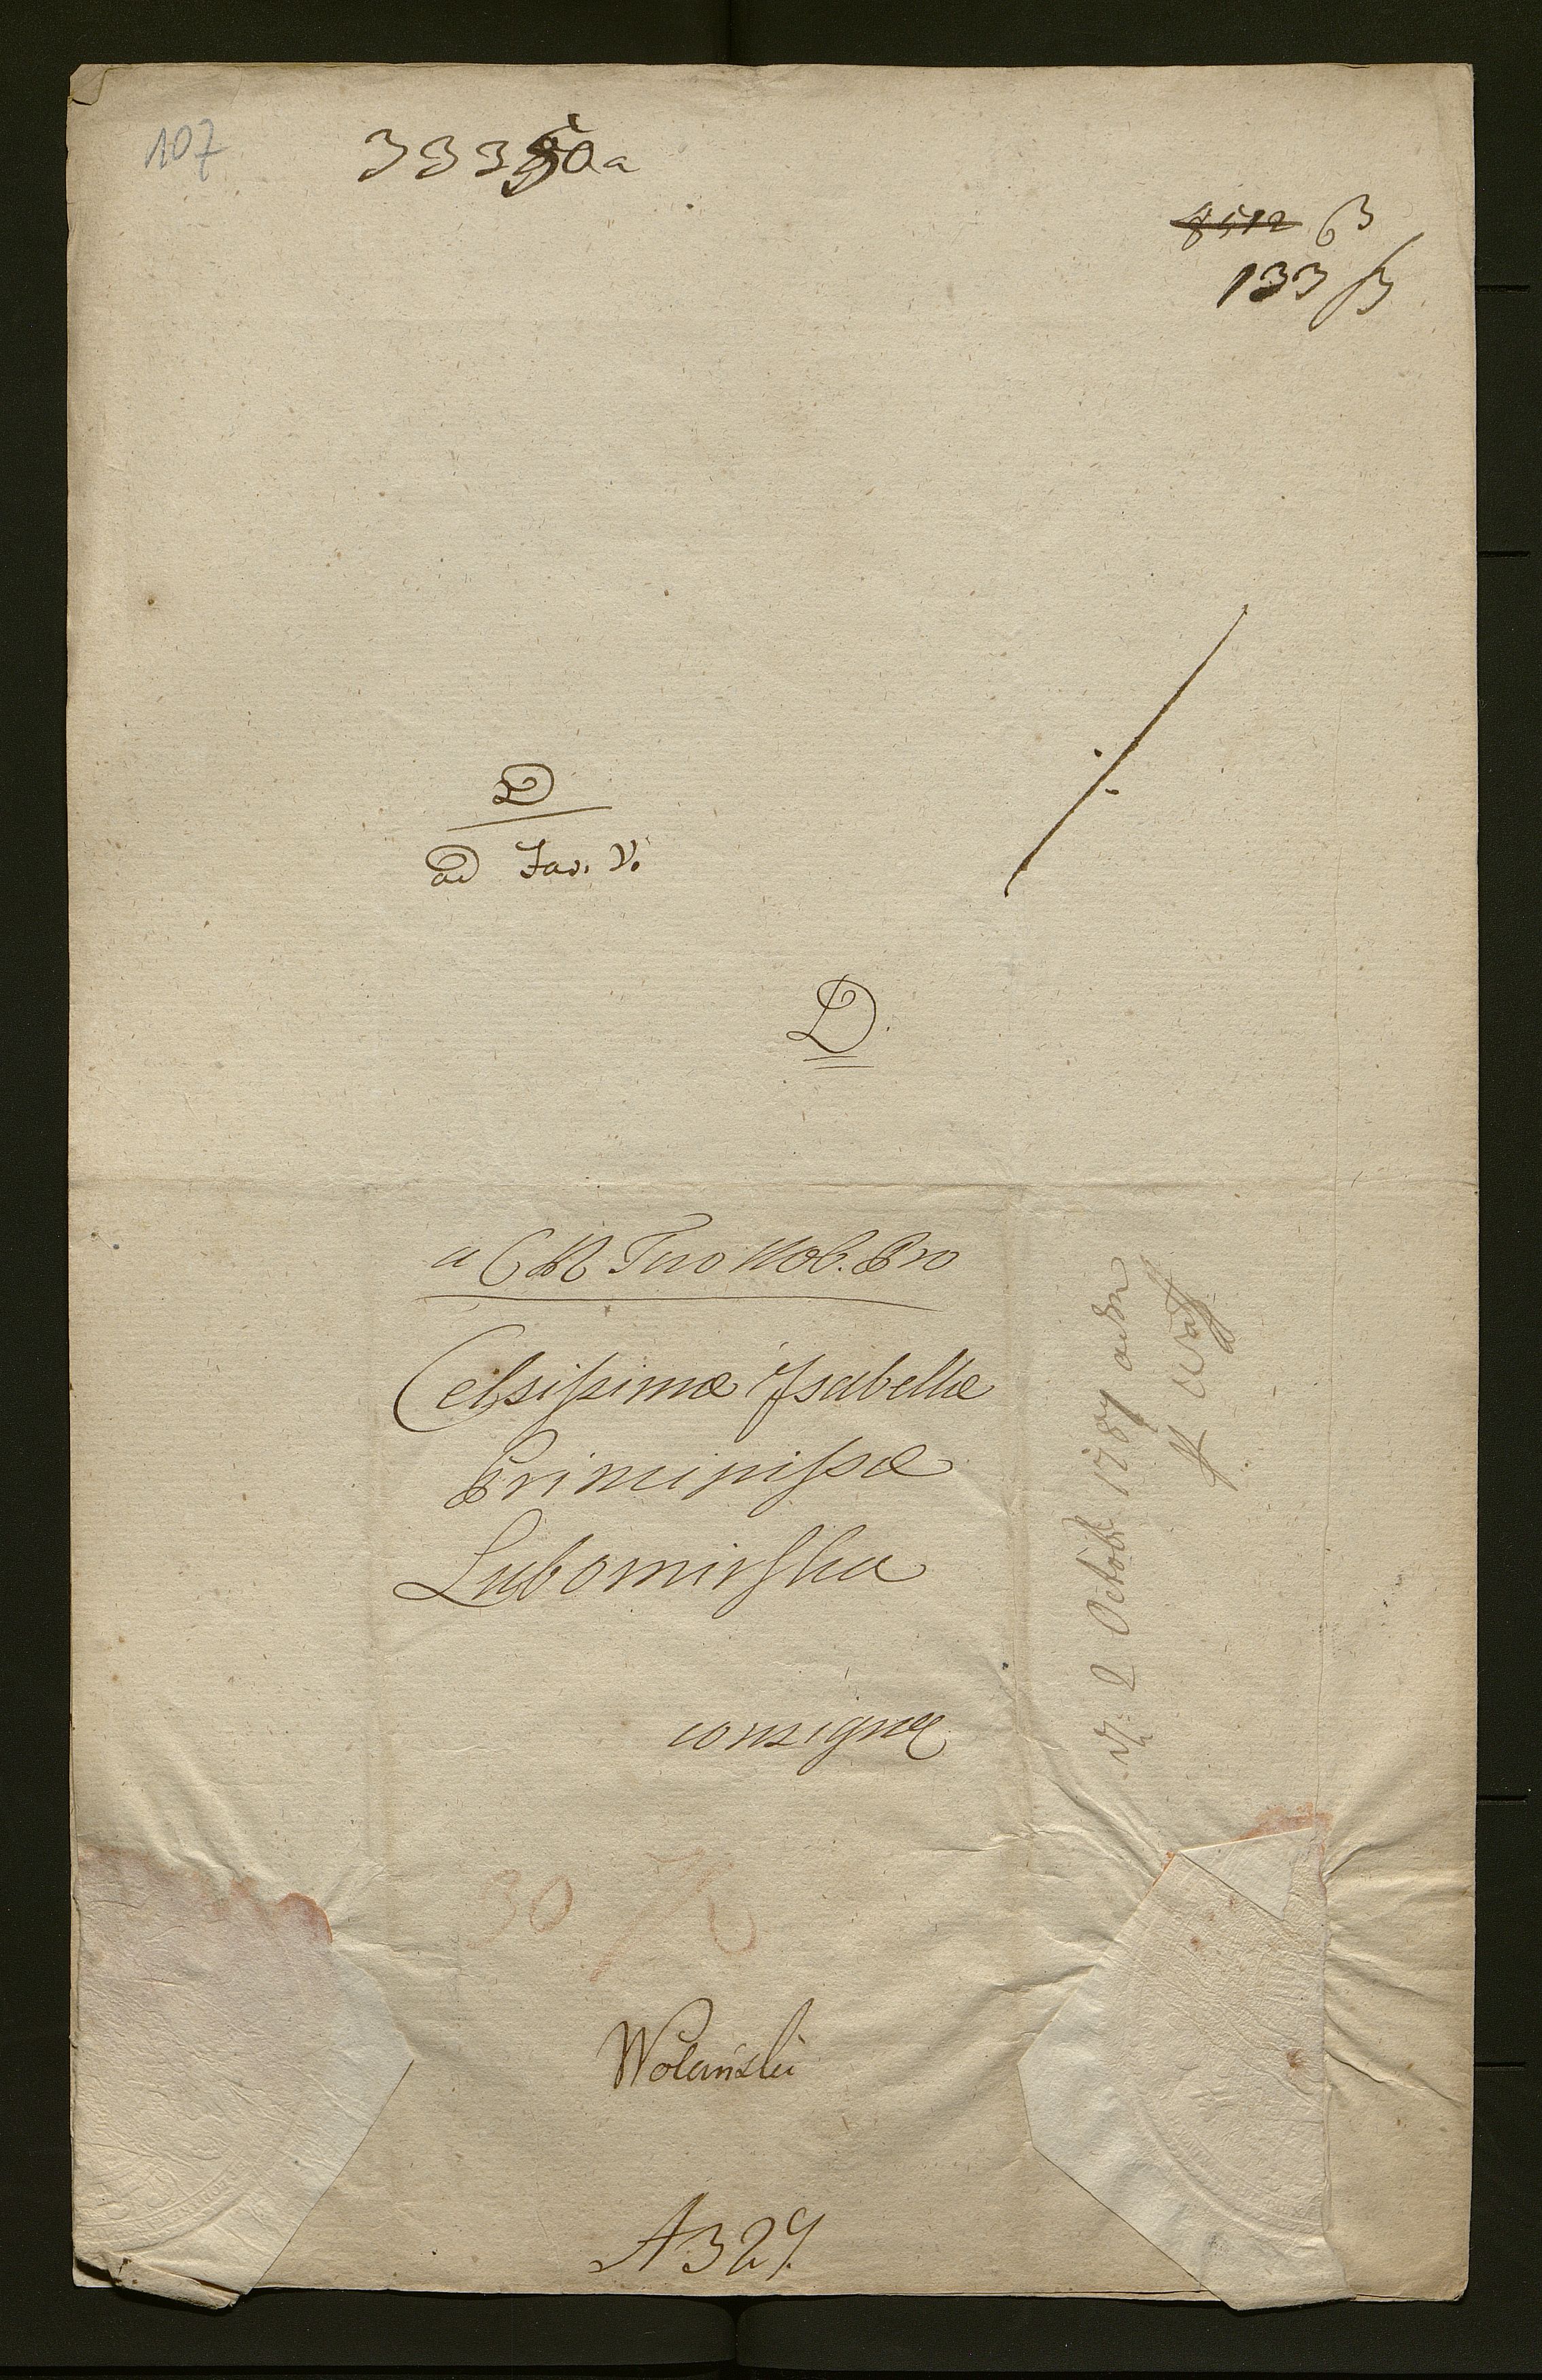 107
33350a
8512 63
133/3
D
ad Fas. V.
D.
a C R Fro Nob. Pro
Celsissimæ Ysabellæ
Principissæ
Lubomirska
consignæ
2 Octobr 1787
30
Wolański
A329